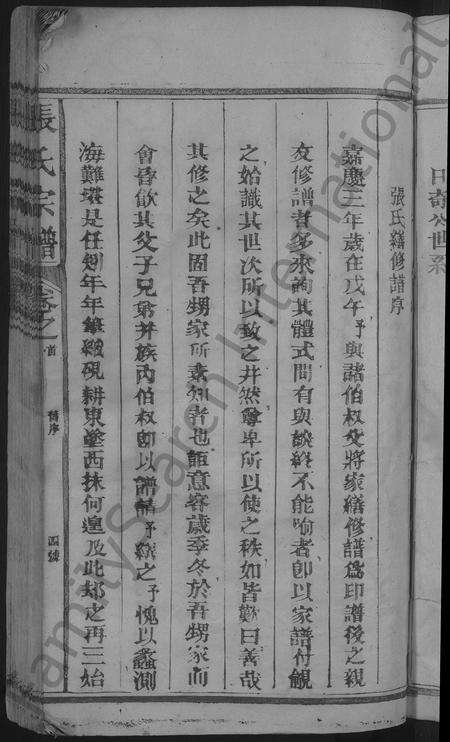 張氏繕修譜序
嘉慶三年歲在戊午予與諸伯叔父將家繕修譜爲印譜後之親
友修譜者多來詢其體式間有與談終不能喻者卽以家譜付觀
之始識其世次所以致之井然尊卑所以使之秩如皆歎曰善哉
其修之矣此固吾甥家所素知者也詎意客歲季冬於吾甥家而
會昏飲其父子兄弟并族內伯叔卽以譜請予繕之予愧以蠡測
海難堪是任矧年年筆線硯耕東塗西抹何遑及此却之再三始
張氏宗譜
卷之首
精序
四號
日奇公世系
FamilySearch International